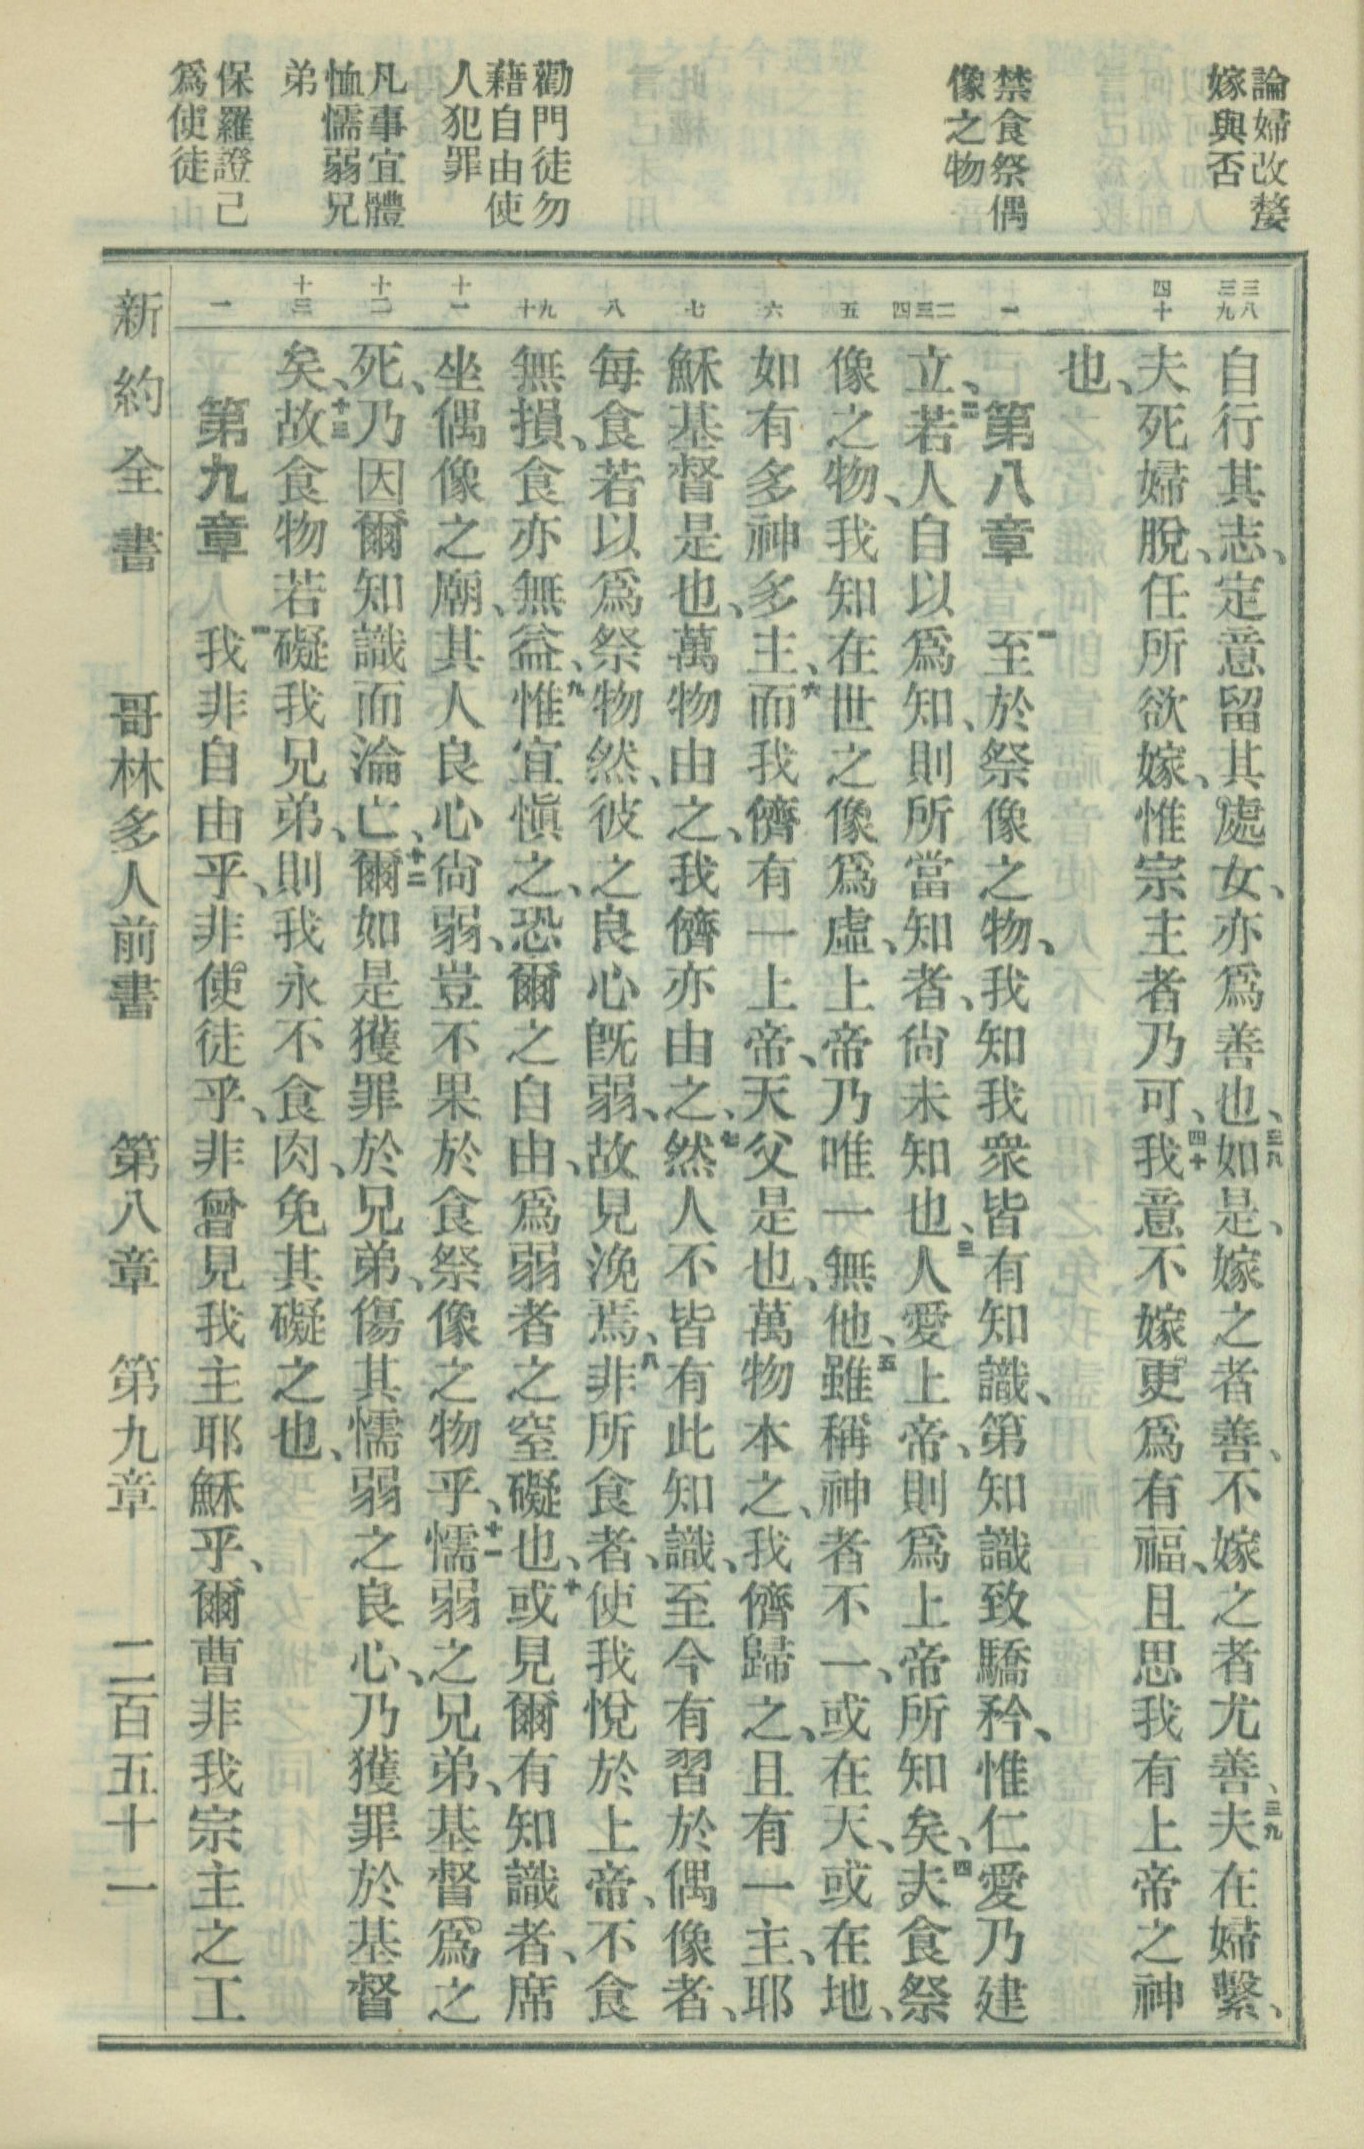 論婦改嫠
嫁與否
禁食祭偶
像之物
勸門徒勿
藉自由使
人犯罪
凡事宜體
恤懦弱兄
弟
保羅證己
爲使徒
三八
三九
四十
一
二
三
四
五
六
七
八
九
十
十一
十二
十三
一
自行其志、定意留其處女、亦爲善也、三八如是、嫁之者善、不嫁之者尤善、三九夫在婦繫、
夫死婦脫、任所欲嫁、惟宗主者乃可、四十我意不嫁更爲有福、且思我有上帝之神
也、
第八章 一至於祭像之物、我知我衆皆有知識、第知識致驕矜、惟仁愛乃建
立、二若人自以爲知、則所當知者、尙未知也、三人愛上帝、則爲上帝所知矣、四夫食祭
像之物、我知在世之像爲虛、上帝乃唯一無他、五雖稱神者不一、或在天、或在地、
如有多神多主、六而我儕有一上帝、天父是也、萬物本之、我儕歸之、且有一主、耶
穌基督是也、萬物由之、我儕亦由之、七然人不皆有此知識、至今有習於偶像者、
每食若以爲祭物然、彼之良心旣弱、故見浼焉、八非所食者、使我悅於上帝、不食
無損、食亦無益、九惟宜愼之、恐爾之自由、爲弱者之窒礙也、十或見爾有知識者、席
坐偶像之廟、其人良心尙弱、豈不果於食祭像之物乎、十一懦弱之兄弟、基督爲之
死、乃因爾知識而淪亡、十二爾如是獲罪於兄弟、傷其懦弱之良心、乃獲罪於基督
矣、十三故食物若礙我兄弟、則我永不食肉、免其礙之也、
第九章 一我非自由乎、非使徒乎、非曾見我主耶穌乎、爾曹非我宗主之工
新約全書 哥林多人前書 第八章 第九章 二百五十一